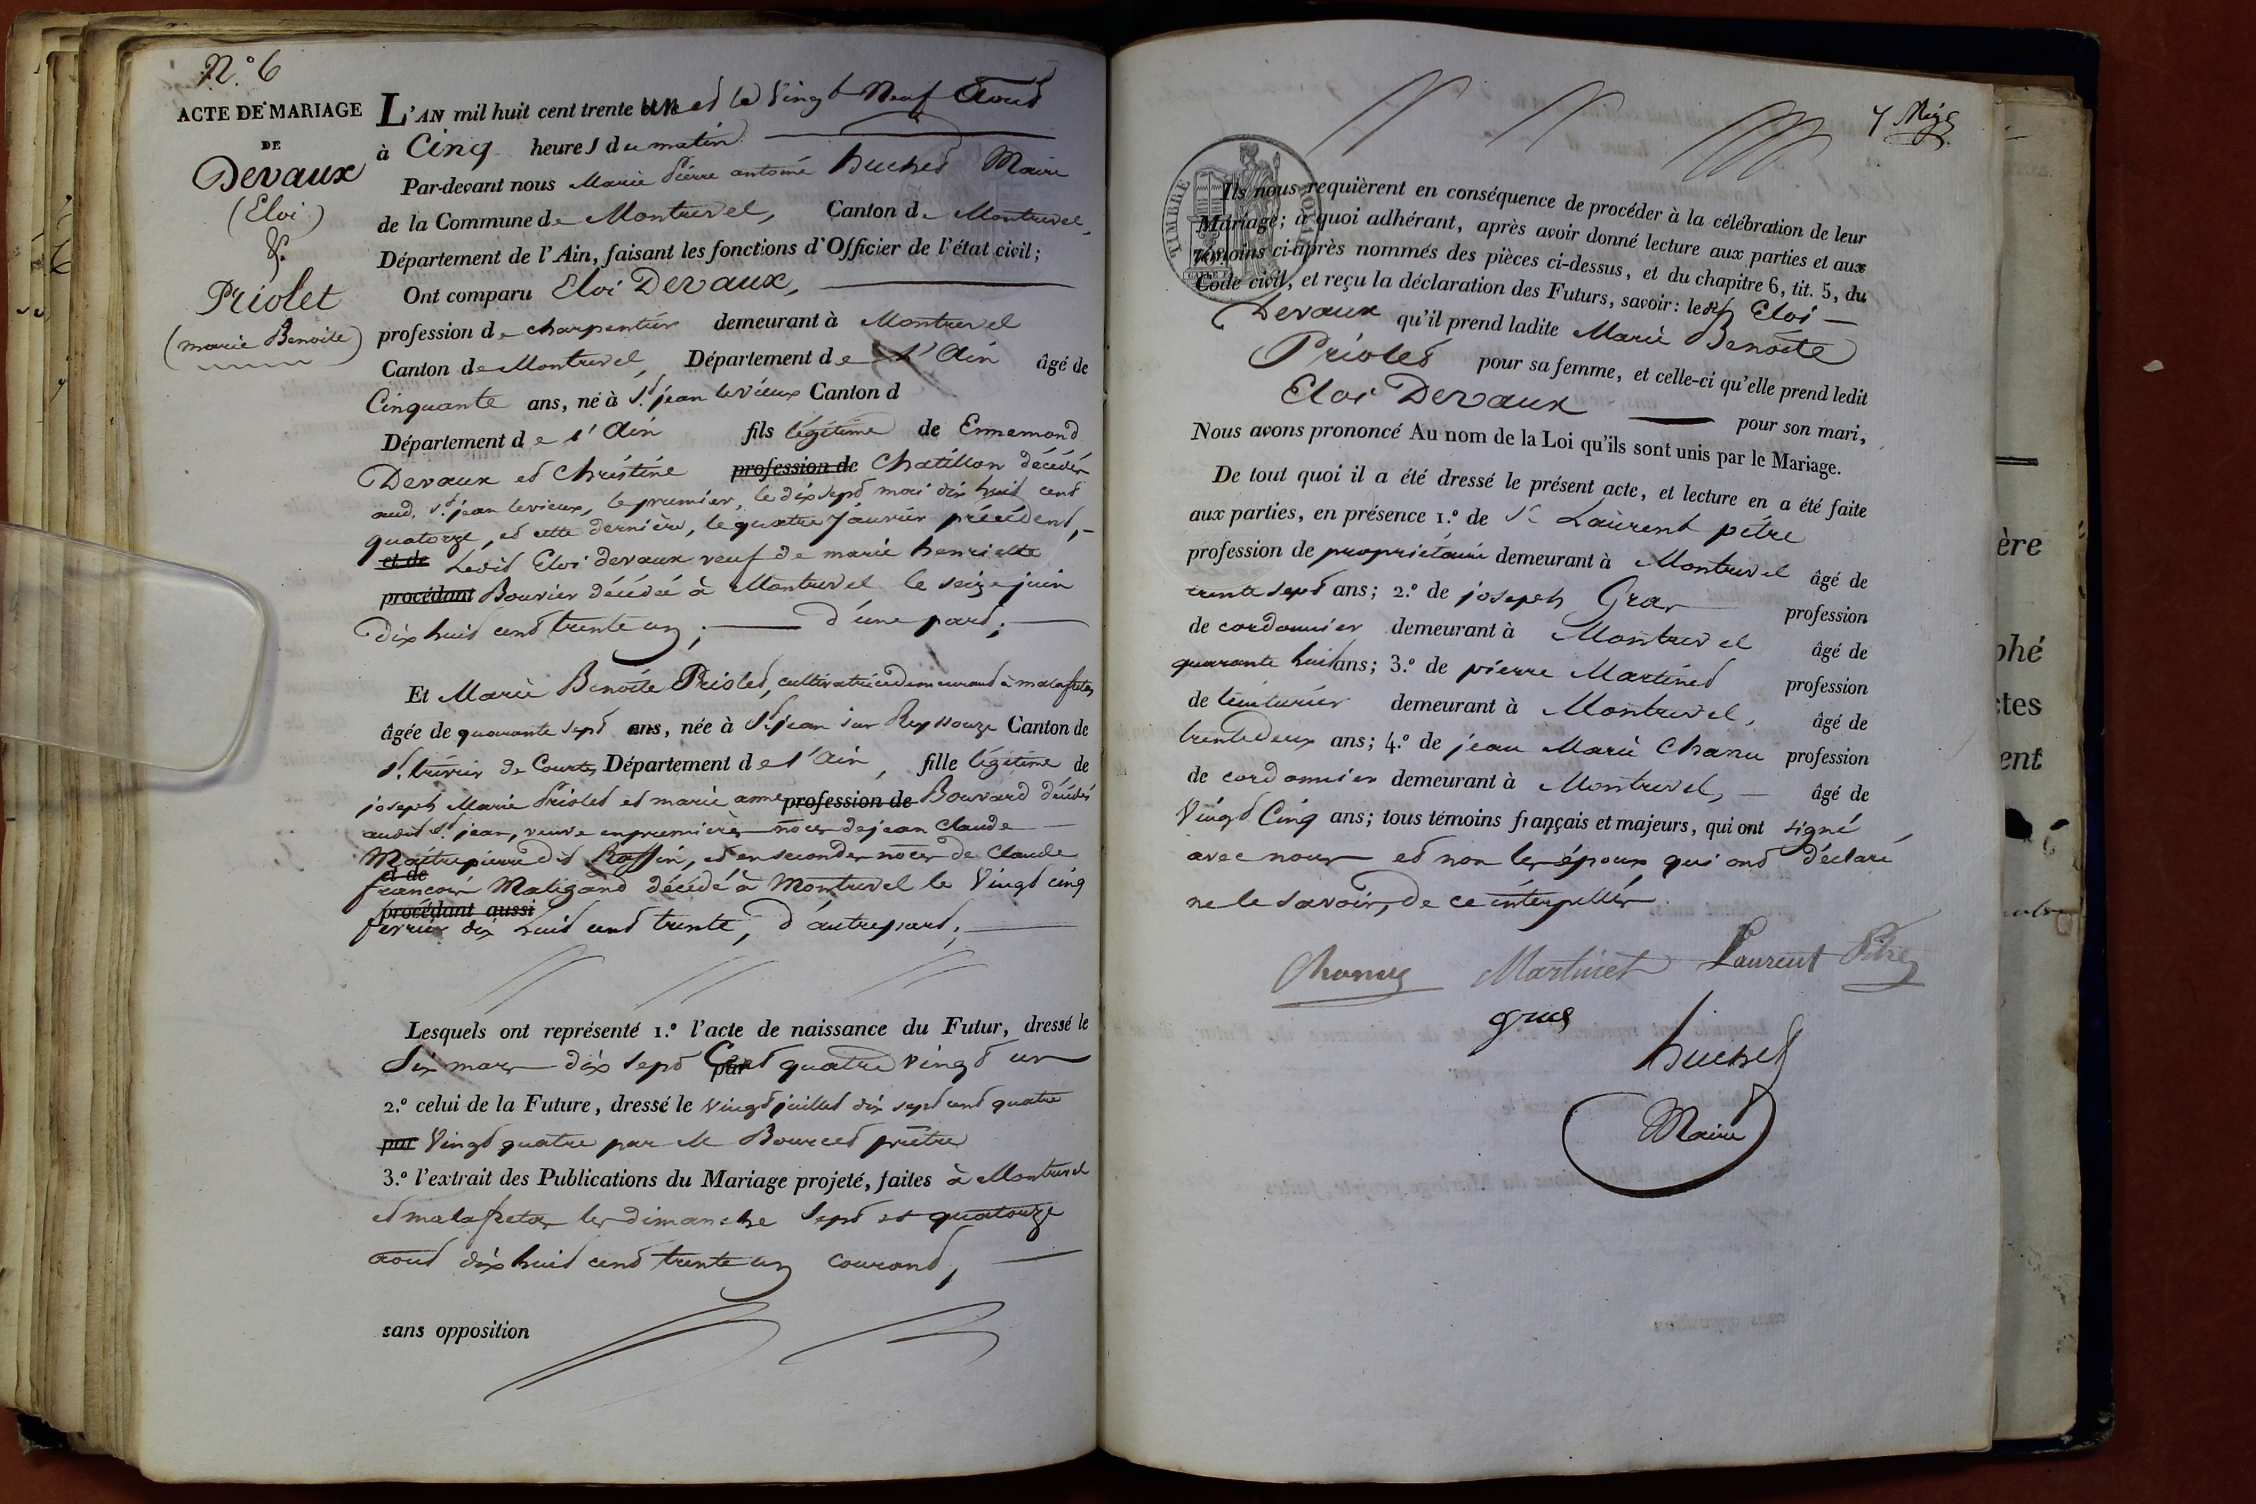 N.° 6
ACTE DE MARIAGE
DE
Devaux
(Eloi)
&
Priolet
(marie Benoite)
L'AN mil huit cent trente un et le Vingt Neuf Aout
à Cinq heures du matin
Par-devant nous Marie Pierre antoine huchet Maire
de la Commune de Montrevel, Canton de Montrevel,
Département de l'Ain, faisant les fonctions d'Officier de l'état civil;
Ont comparu Eloi Devaux,
profession de charpentier demeurant à Montrevel
Canton de Montrevel, Département de l'Ain âgé de
Cinquante ans, né à St. jean le vieux Canton d
Département de l'Ain fils légitime de Ennemond
Devaux et Christine profession de Chatillon décédés
aud. St. jean levieux, le premier, le dix sept mai dix huit cent
quatorze, et cette dernière, le quatre Janvier précédent,
et de Ledit Eloi devaux veuf de marie henriette
procédant Bouvier décédée à Montrevel le seize juin
dix huit cent trente un; d'une part;
Et Marie Benoite Priolet, cultivatrice demeurant à malafretaz
âgée de quarante sept ans, née à St. jean sur Reyssouze Canton de
St. trivier de Courtes Département de l'Ain, fille légitime de
joseph Marie Priolet et marie anne profession de Bouvard décédés
audit St. jean, veuve en premières noces de jean Claude
Maitrepierre dit Raffin, et en secondes noces de Claude
et de
francois Maligand décédé à Montrevel le Vingt cinq
procédant aussi
fevrier dix huit cent trente, d'autre part;
Lesquels ont représenté 1.° l'acte de naissance du Futur, dressé le
Six mars dix sept Cent quatre vingt un
par
2.° celui de la Future, dressé le vingt juillet dix sept cent quatre
par Vingt quatre par M Bourcet prêtre
3.° l'extrait des Publications du Mariage projeté, faites à Montrevel
et malafretaz les dimanche Sept et quatorze
aout dix huit cent trente un courant,
sans opposition
TIMBRE ROYAL
Ils nous requièrent en conséquence de procéder à la célébration de leur
Mariage; à quoi adhérant, après avoir donné lecture aux parties et aux
témoins ci-après nommés des pièces ci-dessus, et du chapitre 6, tit. 5, du
Code civil, et reçu la déclaration des Futurs, savoir: ledit Eloi
Devaux qu'il prend ladite Marie Benoite
Priolet pour sa femme, et celle-ci qu'elle prend ledit
Eloi Devaux pour son mari,
Nous avons prononcé Au nom de la Loi qu'ils sont unis par le Mariage.
De tout quoi il a été dressé le présent acte, et lecture en a été faite
aux parties, en présence 1.° de Sr Laurent pitre
profession de propriétaire demeurant à Montrevel âgé de
trente sept ans; 2.° de joseph Gras profession
de cordonnier demeurant à Montrevel âgé de
quarante huit ans; 3.° de pierre Martinet profession
de teinturier demeurant à Montrevel, âgé de
trente deux ans; 4.° de jean Marie Chanu profession
de cordonnier demeurant à Montrevel, âgé de
Vingt Cinq ans; tous témoins français et majeurs, qui ont signé
avec nous et non les époux qui ont déclaré
ne le savoir, de ce interpellés
Martinet Laurent Pitre
gras
huchet
Maire
ère
phé
ctes
ent